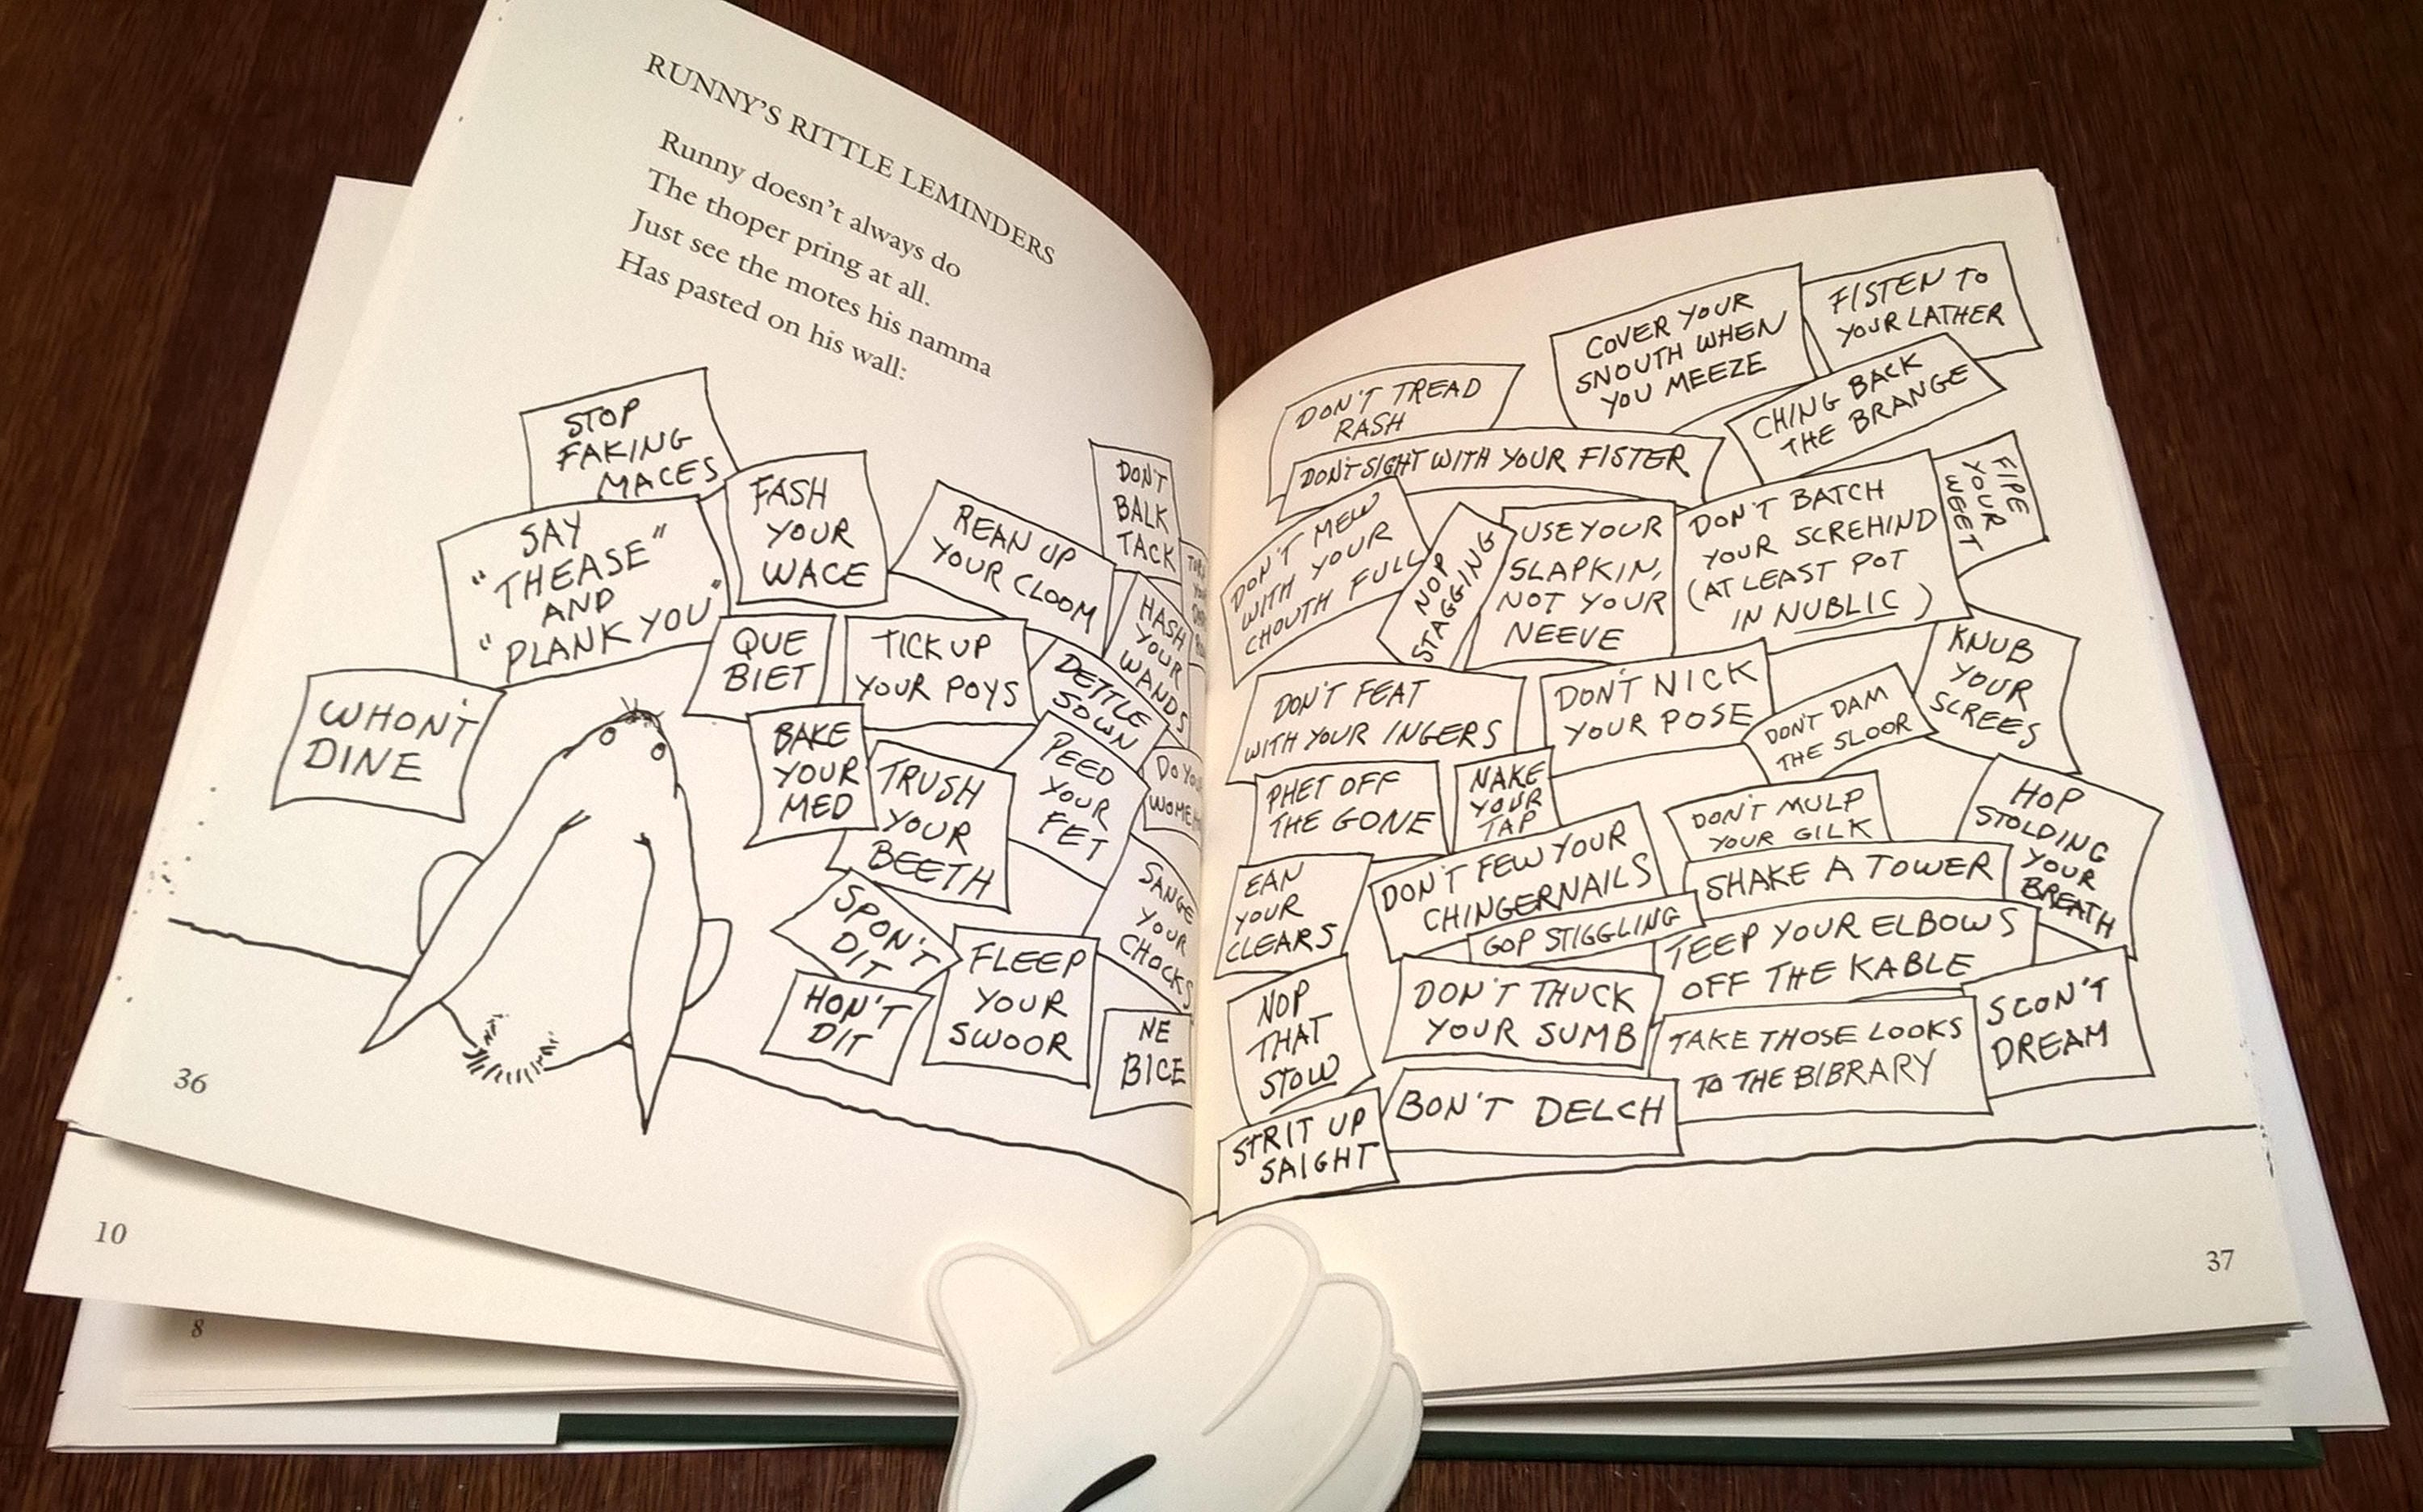 RUNNY'S RITTLE LEMINDERS
Runny doesn't always do
The thoper pring at all.
Just see the motes his namma
Has pasted on his wall:
STOP
FAKING
MACES
SAY
"THEASE"
AND
"PLANK YOU"
FASH
YOUR
WACE
REAN UP
YOUR CLOOM
DON'T
BALK
TACK
HASH
YOUR
WANDS
WHON'T
DINE
QUE
BIET
TICK UP
YOUR POYS
DETTLE
SOWN
BAKE
YOUR
MED
TRUSH
YOUR
BEETH
PEED
YOUR
FET
DO
SPON'T
DIT
FLEEP
YOUR
SWOOR
SANGE
YOUR
CHOCKS
HON'T
DIT
NE
BICE
36
10
8
DON'T TREAD
RASH
COVER YOUR
SNOUTH WHEN
YOU MEEZE
FISTEN TO
YOUR LATHER
CHING BACK
THE BRANGE
DON'T SIGHT WITH YOUR FISTER
DON'T MEW
WITH YOUR
CHOUTH FULL
NOP
STAGGING
USE YOUR
SLAPKIN,
NOT YOUR
NEEVE
DON'T BATCH
YOUR SCREHIND
(AT LEAST POT
IN NUBLIC)
FIPE
YOUR
WEET
DON'T FEAT
WITH YOUR INGERS
DON'T NICK
YOUR POSE
DON'T DAM
THE SLOOR
KNUB
YOUR
SCREES
PHET OFF
THE GONE
NAKE
YOUR
TAP
DON'T MULP
YOUR GILK
HOP
STOLDING
YOUR
BREATH
EAN
YOUR
CLEARS
DON'T FEW YOUR
CHINGERNAILS
SHAKE A TOWER
GOP STIGGLING
TEEP YOUR ELBOWS
OFF THE KABLE
NOP
THAT
STOW
DON'T THUCK
YOUR SUMB
TAKE THOSE LOOKS
TO THE BIBRARY
SCON'T
DREAM
STRIT UP
SAIGHT
BON'T DELCH
37